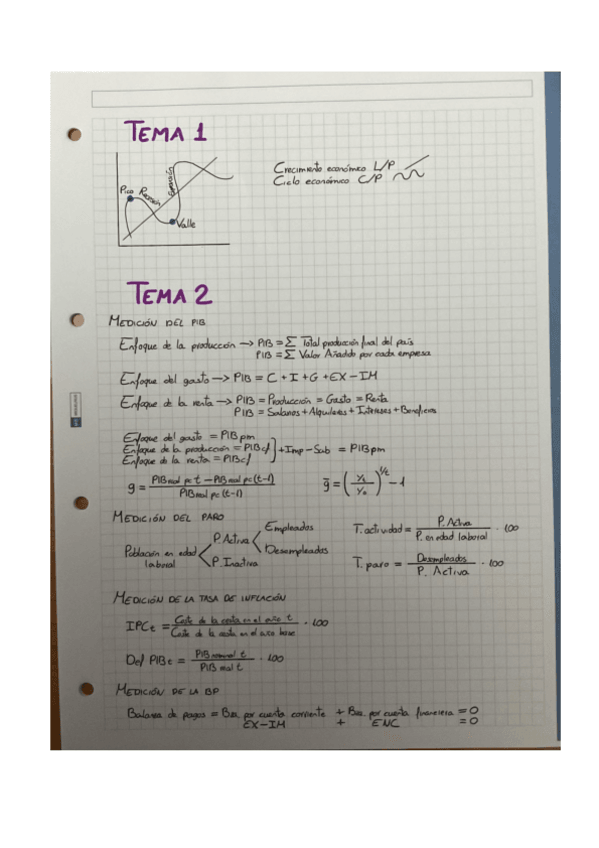 TEMA 1
Pico
Recesión
Expansión
Valle
Crecimiento económico L/P
Ciclo económico C/P
TEMA 2
MEDICIÓN DEL PIB
Enfoque de la producción → PIB = Σ Total producción final del país
PIB = Σ Valor Añadido por cada empresa
Enfoque del gasto → PIB = C + I + G + EX - IM
Enfoque de la renta → PIB = Producción = Gasto = Renta
PIB = Salarios + Alquileres + Intereses + Beneficios
Enfoque del gasto = PIBpm
Enfoque de la producción = PIBcf
Enfoque de la renta = PIBcf
+ Imp - Sub = PIBpm
g = PIBreal pc t - PIBreal pc (t-1) / PIBreal pc (t-1)
ḡ = (Yt / Yo)^1/t - 1
MEDICIÓN DEL PARO
Población en edad laboral
P. Activa
P. Inactiva
Empleados
Desempleados
T. actividad = P. Activa / P. en edad laboral · 100
T. paro = Desempleados / P. Activa · 100
MEDICIÓN DE LA TASA DE INFLACIÓN
IPCt = Coste de la cesta en el año t / Coste de la cesta en el año base · 100
Def PIBt = PIB nominal t / PIB real t · 100
MEDICIÓN DE LA BP
Balanza de pagos = Bza. por cuenta corriente + Bza. por cuenta financiera = 0
EX-IM + ENC = 0